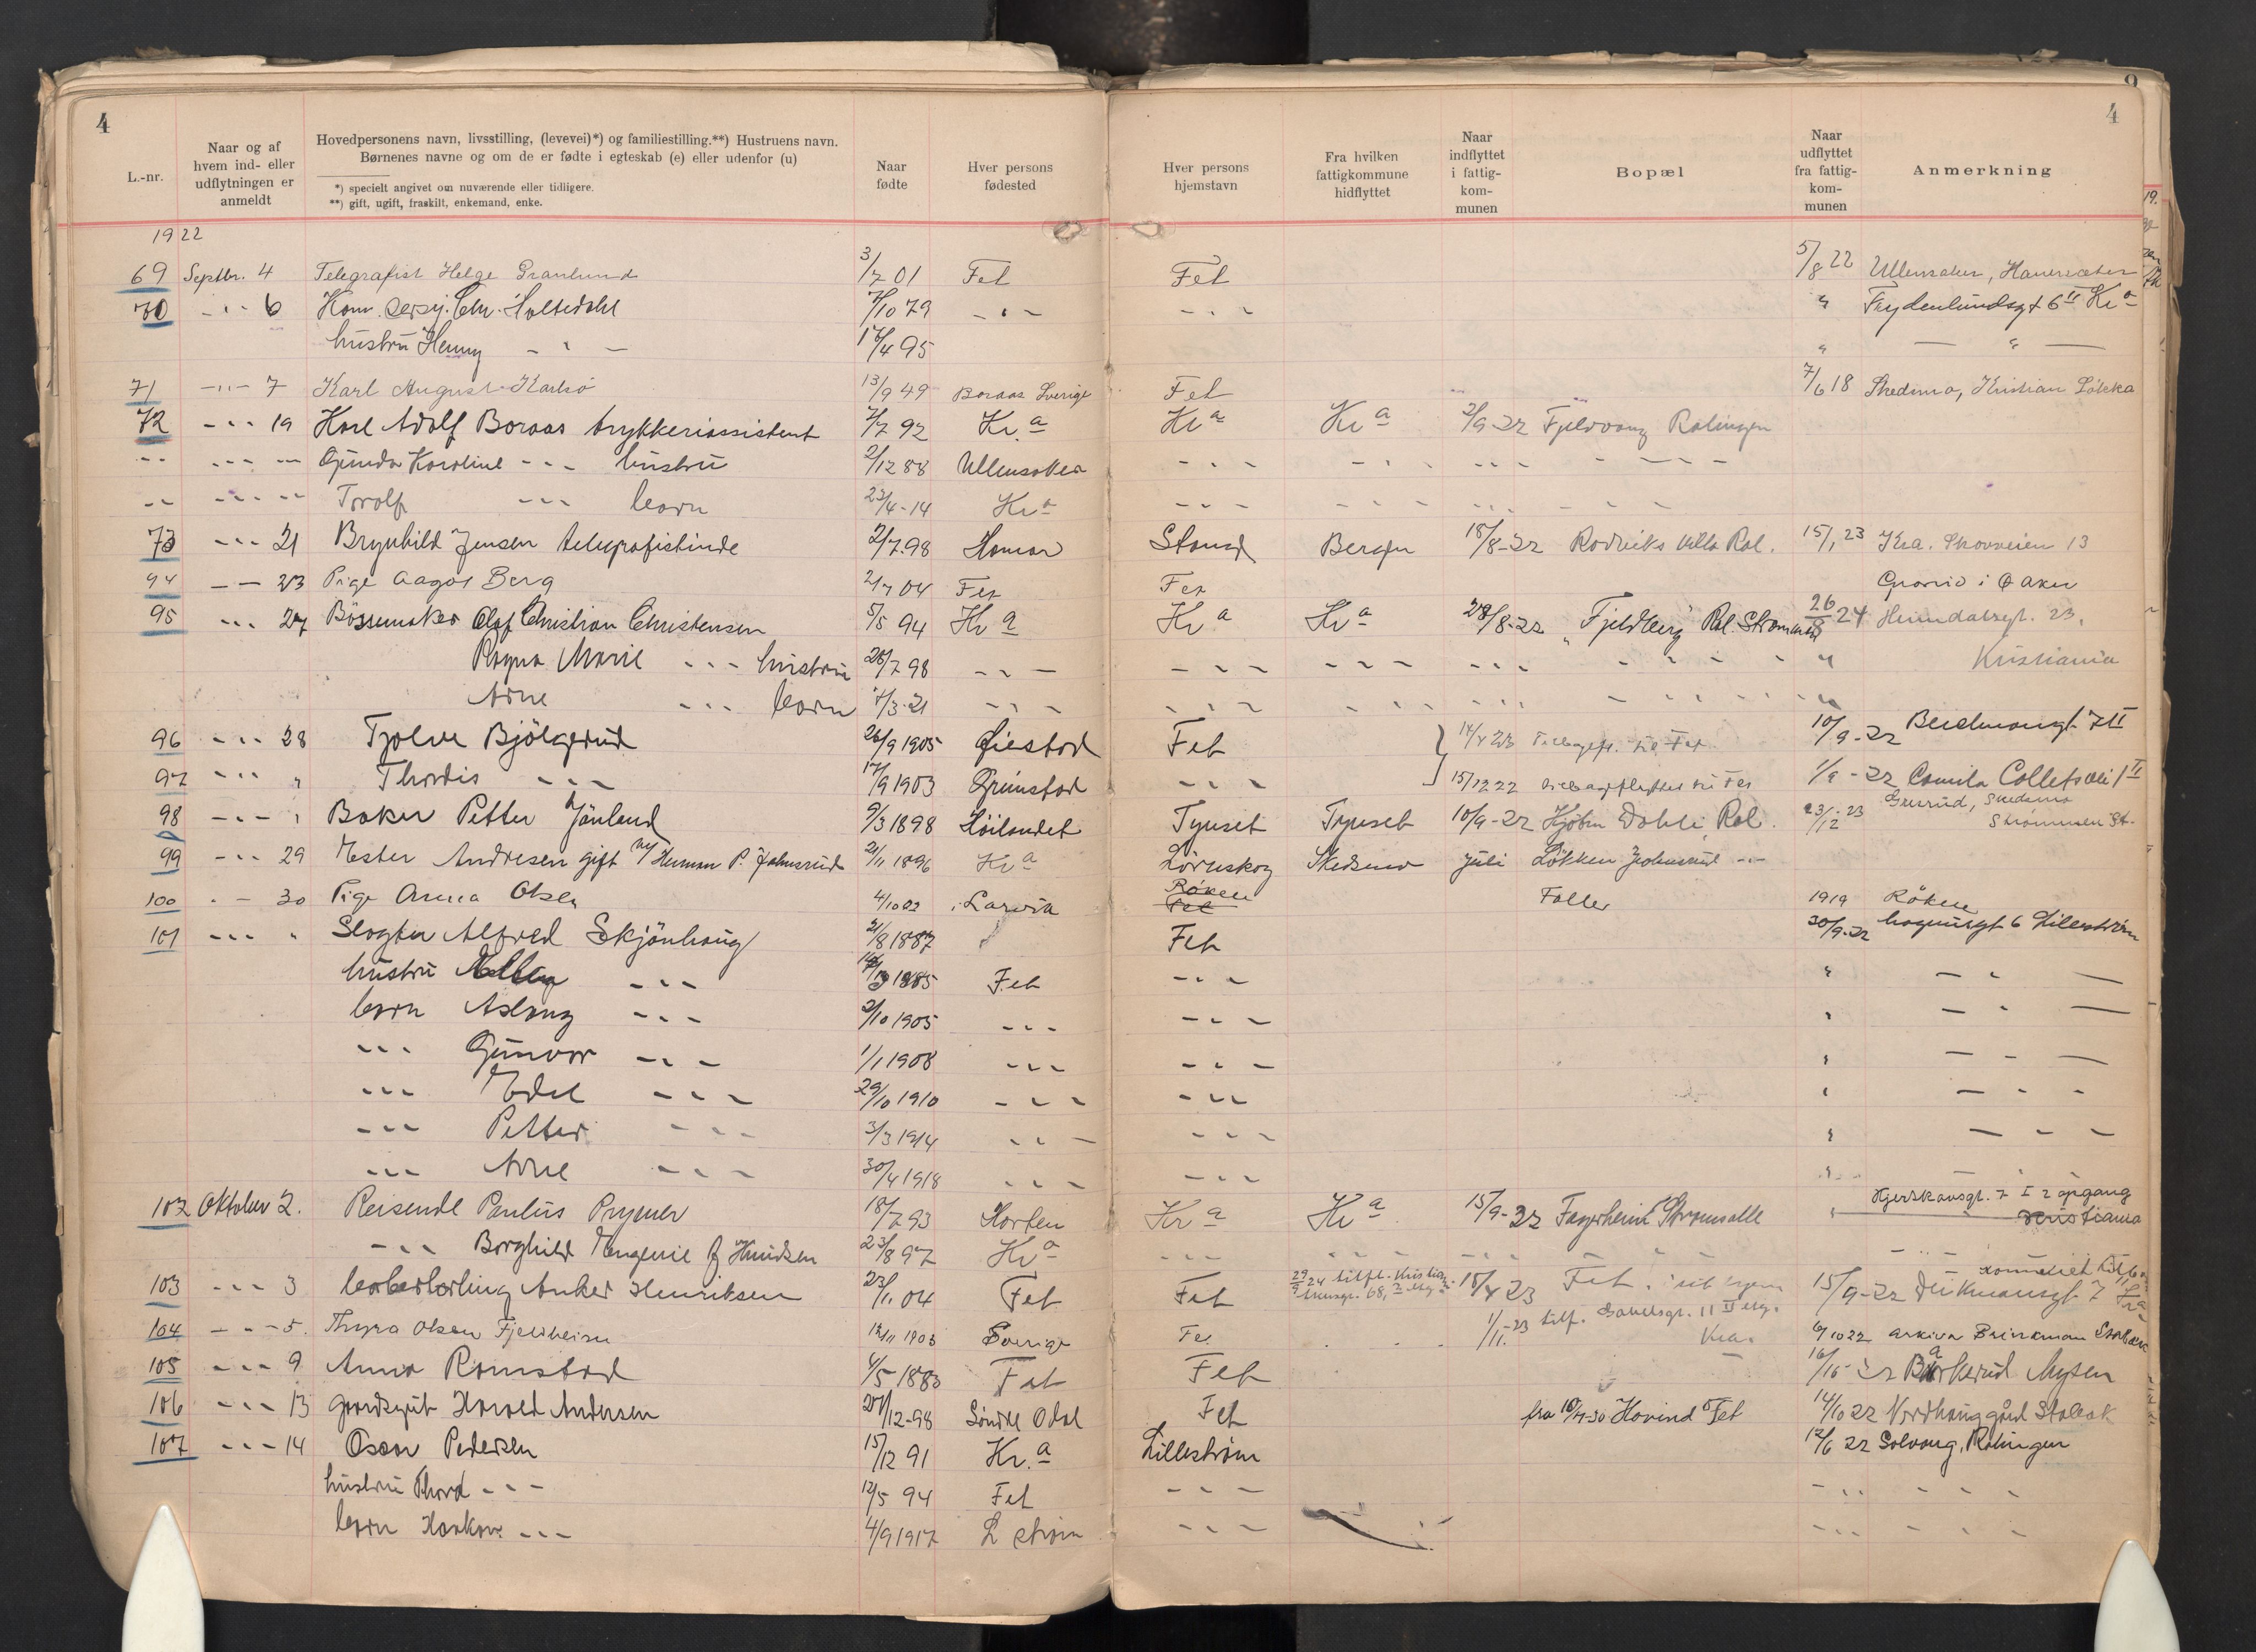 4
4
9
L.-nr.
Naar og af hvem ind- eller udflytningen er anmeldt
Hovedpersonens navn, livsstilling, (levevei)*) og familiestilling.**) Hustruens navn.
Børnenes navne og om de er fødte i egteskab (e) eller udenfor (u)
*) specielt angivet om nuværende eller tidligere.
**) gift, ugift, fraskilt, enkemand, enke.
Naar fødte
Hver persons fødested
Hver persons hjemstavn
Fra hvilken fattigkommune hidflyttet
Naar indflyttet i fattig-kom-munen
Bopæl
Naar udflyttet fra fattig-kom-munen
Anmerkning
1922
69 Septbr. 4 Telegrafist Helge Granlund 3/7 01 Fet Fet 5/8 22 Ullensaker,
70 - " - 6 Chr. Holtedahl 7/10 79 - " - - " - " Frydenlundsgt 6 II Kr a
hustru Henny - " - 17/4 95 " - " -
71 - " - 7 Karl August 13/9 49 Boraas Sverige Fet 7/6 18 Skedsmo, Kristian Løkka
72 - " - 19 Karl Adolf Boraas trykkeriassistent 7/7 92 Kr. a Kr a Kr a 2/9-22 Fjeldvang Ralingen
- - - " - Gunda Karoline - " - hustru 2/12 88 Ullensaker - " - - " - - " - - " -
- - - " - Torolf - " - barn 23/4-14 Kr a - " - - " - - " - - " -
73 - " - 21 Brynhild Jensen telegrafistinde 2/7.98 Hamar Bergen 18/8-22 Rodviks villa Ral. 15/1 23 Kra. Skovveien 13
94 - - 23 Pige Aagot Berg 2/7 04 Fet Fet Grorud i Ø Aker
95 - " - 27 Bøssemaker Olaf Christian Christensen 5/5 94 Kr a Kr a Kr a 28/8-22 "Fjeldberg" Ral. Strømmen 26/8 24 Heimdalsgt. 23,
Ragna Marie - " - hustru 28/7 98 - " - - " - - " - - " - - " - " Kristiania
Arne - " - barn 7/3-21 - " - - " - - " - - " - - " - "
96 - " - 28 Tjolve Bjølgerud 26/9 1905 Øiestad Fet 14/4 23 Tilbagefl. til Fet 10/9-22 7 II
97 - " - " Thordis - " - 17/9 1903 Grimstad - " - 15/12 22 tilbageflyttet til Fet 1/9-22 Camilla Colletsvei 1 II
98 - " - " Baker Petter Jønland 9/3 1898 Høilandet Tynset Tynset 10/9-22 Kjøbm Dahli, Ral. 23/12-23 Skedsmo
Strømmen St.
99 - " - 29 Ester Andresen gift m/ Herman P. Johnsrud 21/11 1896 Kr a Lørenskog Skedsmo juli Løkken Johnsrud - " -
100 - " - 30 Pige Anna Olsen 4/10 02 Larvik Røken Fet Faller 1919 Røken
101 - " - " Slagter Alfred Skjønhaug 21/8 1887 Fet 30/9-22 6 Lillestrøm
hustru 1885 Fet - " - " - " -
barn Aslaug - " - 2/10 1905 - " - - " - " - " -
- " - Gunvor - " - 1/1 1908 - " - - " - " - " -
- " - Edel - " - 29/10 1910 - " - - " - " - " -
- " - Petter - " - 3/3 1914 - " - - " - " - " -
- " - Arne - " - 30/4 1918 - " - - " - " - " -
102 Oktober 2. Reisende Paulus Prymer 18/7 93 Horten Kr a Kr a 15/9-22 Fagerheim Strømsalle " Hjerskausgt. 7 I 2 opgang
Kristiania
- " - Borghild Eugenie f Knudsen 23/8 97 Kr a - " - - " - - " - - " -
103 - " - 3 Anker Henriksen 23/1 04 Fet Fet 29/9 24 tilfl. 68, 15/4 23 Fet. 15/9-22 Deikmansgt 7 Kr a
104 - " - 5. Thyra Olsen Fjeldheim 12/11 1903 Sverige Fet 1/11-23 tilf. 11 II etg. Kra. 6/10 22 Arkivar Brinkman
105 - " - 9 Anna Ramstad 4/5 1883 Fet Fet 16/10 22 Mysen
106 - " - 13 gaardsgut Harald Andersen 27/12-98 Søndre Odal Fet fra 10/4-30 Hovind Fet 14/10 22 Nordhaug gård
107 - " - 14 Oscar Pedersen 15/12 91 Kr. a Lillestrøm 12/6 22 Solvang, Ralingen
hustru Thora - " - 12/5 94 Fet - " - - " -
barn Haakon - " - 4/9 1917 L strøm - " - - " -